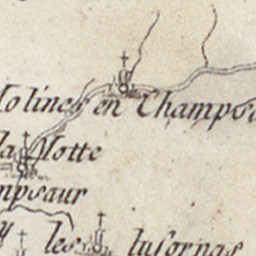 Molines en Champsaur
la Motte
mpsaur
y les lusornas